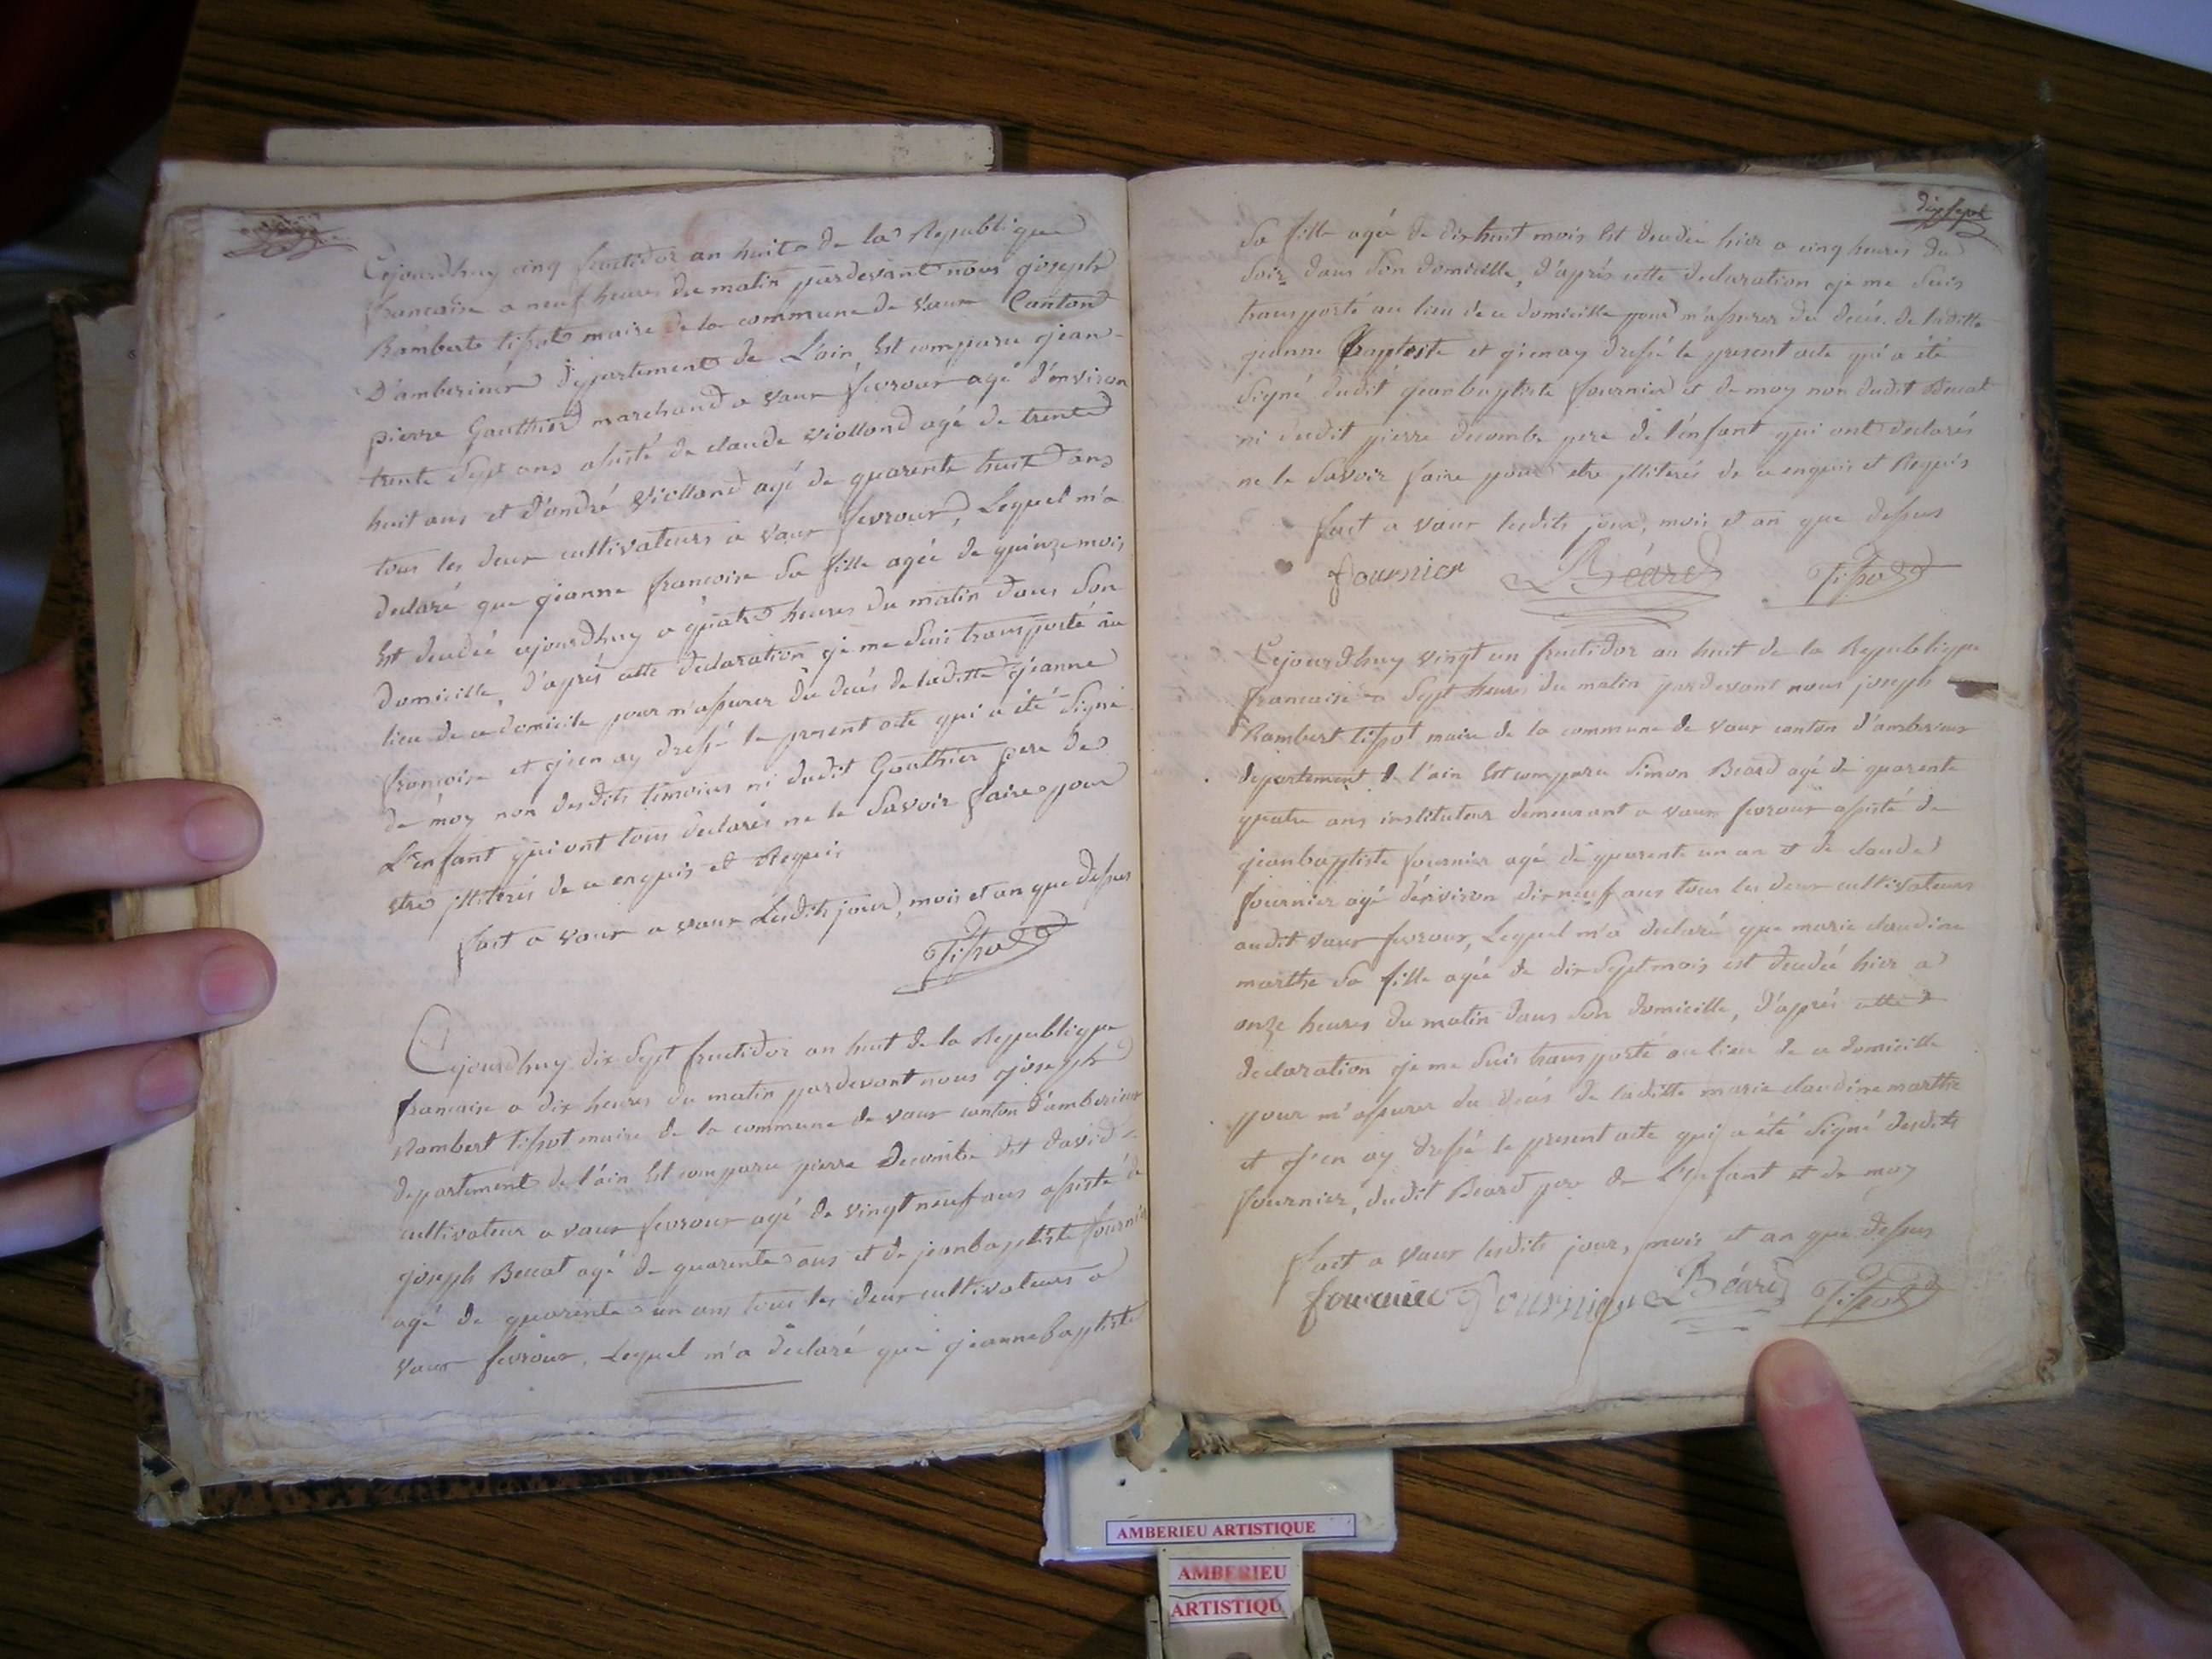 Cejourdhuy cinq fructidor an huit de la Republique
francaise a neuf heures du matin pardevant nous joseph
Rambert tissot maire de la commune de vaux Canton
D'amberieux departement de L'ain Est comparu jean
pierre Gauthier marchand a vaux fevroux agé d'environ
trente Sept ans assisté de claude Viollond agé de trente
huit ans et d'andré Viollond agé de quarente huit ans
tous les deux cultivateurs a vaux fevroux, Lequel m'a
declaré que jeanne francoise Sa fille agée de quinze mois
Est decedée cejourdhuy a quatre heures du matin dans Son
domicille, d'après cette declaration je me Suis transporté au
lieu de ce domicile pour m'assurer du decés de laditte jeanne
francoise et j'en ay dressé le present acte qui a été Signé
de moy non desdits temoins ni dudit Gauthier pere de
L'enfant qui ont tous declarés ne le Savoir faire pour
etre illiterés de ce enquis et Requis
fait a vaux a vaux Lesdits jour, mois et an que dessus
Tissot
Cejourdhuy dix Sept fructidor an huit de la Republique
francaise a dix heures du matin pardevant nous joseph
Rambert tissot maire de la commune de vaux canton d'amberieux
departement de l'ain Est comparu pierre decombe dit david
cultivateur a vaux fevroux agé de vingt neuf ans assisté de
joseph Beccat agé de quarente ans et de jeanbaptiste fournier
agé de quarente un ans tous les deux cultivateurs a
vaux fevroux, Lequel m'a declaré que jeanne baptiste
dix sept
Sa fille agée de dix huit mois Est decedée hier a cinq heures du
Soir dans Son domicille, d'après cette declaration je me Suis
transporté au lieu de ce domicille pour m'assurer du decés de laditte
jeanne Baptiste et j'en ay dressé le present acte qui a été
Signé dudit jeanbaptiste fournier et de moy non dudit Beccat
ni dudit pierre decombe pere de l'enfant qui ont declarés
ne le Savoir faire pour etre illiterés de ce enquis et Requis
fait a vaux lesdits jour, mois et an que dessus
fournier Béard Tissot
Cejourdhuy vingt un fructidor an huit de la Republique
francaise a Sept heures du matin pardevant nous joseph
Rambert tissot maire de la commune de vaux canton d'amberieux
departement de l'ain Est comparu Simon Beard agé de quarente
quatre ans instituteur demeurant a vaux fevroux assisté de
jeanbaptiste fournier agé de quarente un an et de claude
fournier agé d'environ dix neuf ans tous les deux cultivateurs
audit vaux fevroux, Lequel m'a declaré que marie claudine
marthe Sa fille agée de dix Sept mois est decedée hier a
onze heures du matin dans Son domicille, d'après cette
declaration je me Suis transporté au lieu de ce domicille
pour m'assurer du decés de laditte marie claudine marthe
et j'en ay dressé le present acte qui a été Signé desdits
fournier, dudit Beard pere de L'enfant et de moy
fait a vaux lesdits jour, mois et an que dessus
fournier Fournier Béard Tissot
AMBERIEU ARTISTIQUE
AMBERIEU
ARTISTIQU